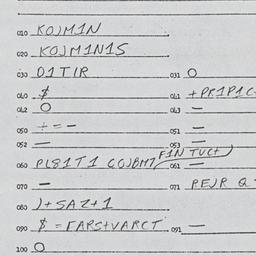 010 KO)M1N
020 KO)M1N1S
030 D1TIR 031 O
040 $ 041 +PR1P1C
042 O 043 —
050 + = — 051 —
052 — 053 —
F1N TUCT)
060 PL81T1 CO)BM7 061 —
070 — 071 PE)R Q
080 )+SAZ+1
090 $ = FARS+VARCT 091 —
100 O